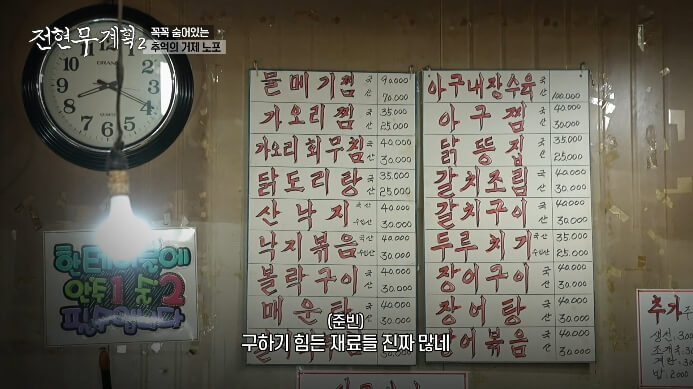 전현무계획2
꼭꼭 숨어있는
추억의 거제 노포
물메기찜 국 90,000
산 70,000
가오리찜 국 35,000
산 25,000
가오리회무침 국 40,000
산 30,000
닭도리탕 국 35,000
산 25,000
산낙지 국산 40,000
수입산 30,000
낙지볶음 국산 40,000
수입산 30,000
볼락구이 국 40,000
산 30,000
매운탕 국 40,000
산 30,000
아구내장수육 국
산 100,000
아구찜 국 40,000
산 30,000
닭똥집 국 35,000
산 25,000
갈치조림 국 40,000
산 30,000
갈치구이 국 40,000
산 30,000
두루치기 국산 35,000
수입산 25,000
장어구이 국 40,000
산 30,000
장어탕 국 40,000
산 30,000
어볶음 국 40,000
산 30,000
한테이블에
안주1 술2
필수입니다
추가
생선
밥
(준빈)
구하기 힘든 재료들 진짜 많네